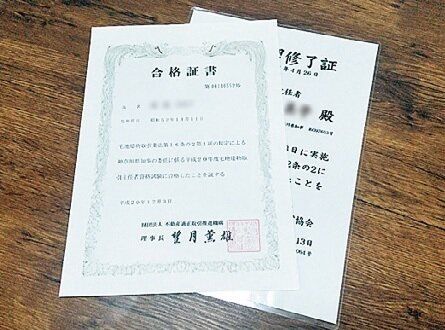 合格証書
氏名
生年月日 昭和52年11月11日
宅地建物取引業法第16条の2第1項の規定による
知事の委任に係る平成20年度宅地建物取
引主任者資格試験に合格したことを証する
平成20年12月3日
財団法人 不動産適正取引推進機構
理事長 望月薫雄
修了証
年4月26日
主任者
殿
日に実施
2条の2に
ことを
協会
13日